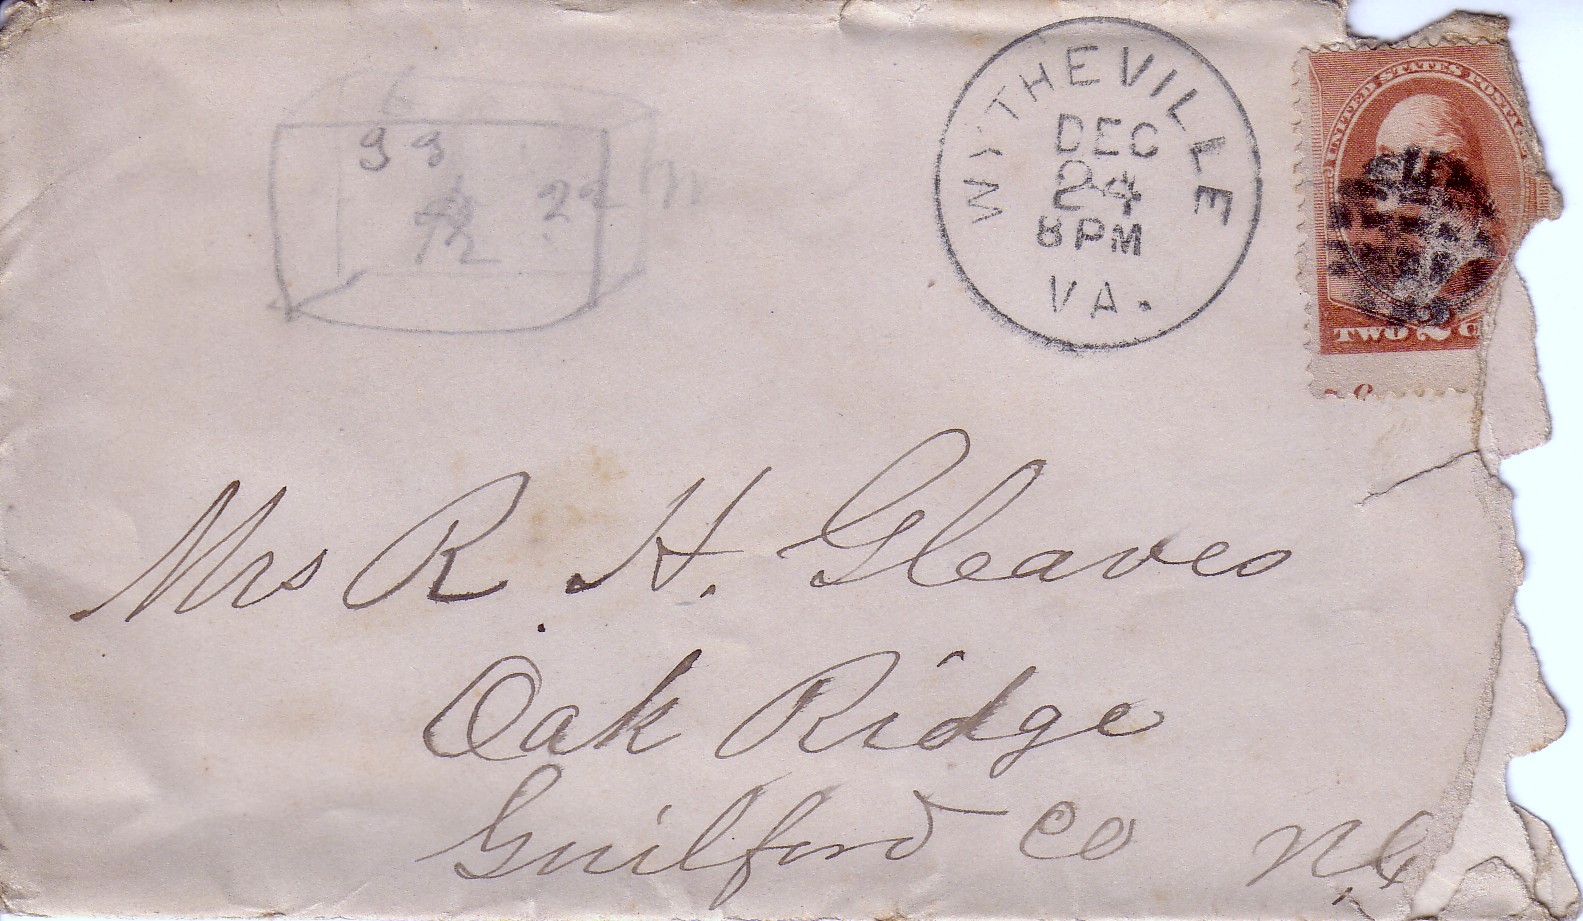 WYTHEVILLE
DEC
24
8 PM
VA.
UNITED STATES POSTAGE
TWO 2 C
Mrs R. H. Gleaves
Oak Ridge
Guilford Co NC